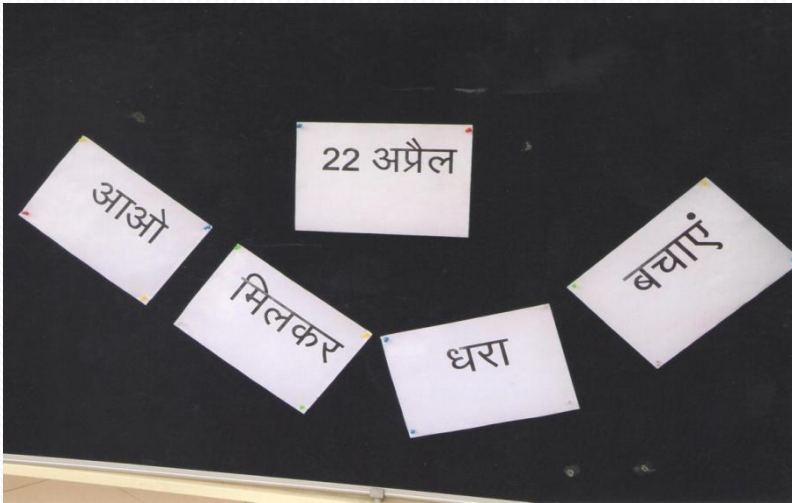 22 अप्रैल
आओ मिलकर धरा बचाएं